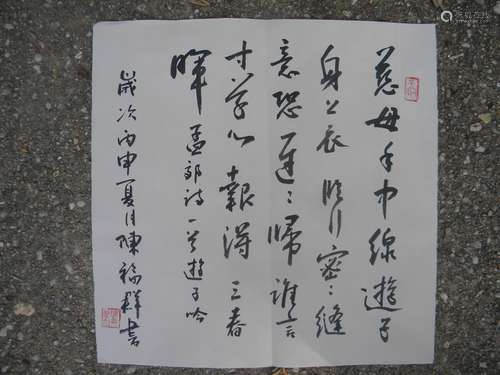 慈母手中線遊子
身上衣临行密〻縫
意恐遲〻歸誰言
寸草心報得三春
暉 孟郊诗一首遊子吟
歲次丙申夏月陳福書